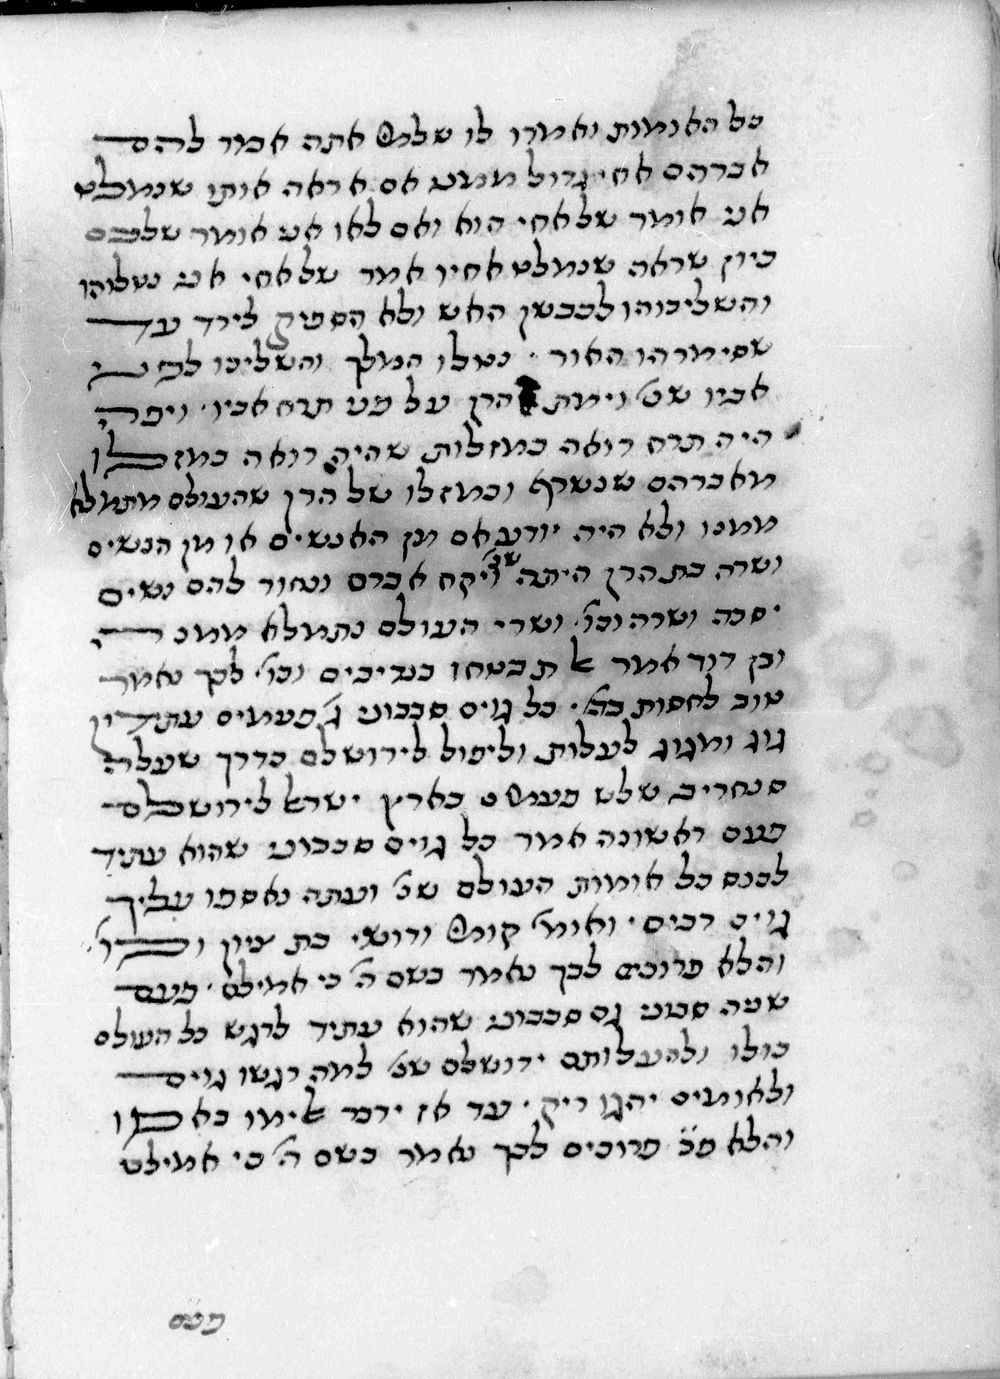 כל האומות ואמרו לו של מי אתה אמר להם
אברהם אחי גדול ממני אם אראה אותו שנמלט
אני אומר של אחי הוא ואם לאו אני אומר שלכם
כיון שראה שנמלט אחיו אמר של אחי אני נטלוהו
והשליכוהו לכבשן האש ולא הספיק לירד עד
שסימרהו האור · נטלו המלך והשליכו לפני
אביו שנ׳ וימת הרן על פני תרח אביו · ויפה
היה תרח רואה במזלות שהיה רואה במזלו
מאברהם שנשרף ובמזלו של הרן שהעולם מתמלא
ממנו ולא היה יודע אם מן האנשים או מן הנשים
ושרה בת הרן היתה שנ׳ ויקח אברם ונחור להם נשים
יסכה ושרה וכו׳ · ושרי העולם נתמלא ממנה
וכן דוד אמר אל תבטחו בנדיבים וכו׳ לכך נאמר
טוב לחסות בה׳ · כל גוים סבבוני ג׳ פעמים עתידין
גוג ומגוג לעלות וליפול לירושלם כדרך שעלה
סנחריב שלש פעמים בארץ ישראל לירושלם
פעם ראשונה אמר כל גוים סבבוני שהוא עתיד
לכנס כל אומות העולם שנ׳ ועתה נאספו עליך
גוים רבים · ואומ׳ קומי ודושי בת ציון וכו׳
והלא פרוכים לכך נאמר בשם ה׳ כי אמילם · פעם
שניה סבוני גם סבבוני שהוא עתיד לרגש כל העולם
כולו ולהעלותם ירושלם שנ׳ למה רגשו גוים
ולאומים יהגו ריק · עד אז ידבר אלימו באפו
והלא פרוכים לכך נאמר בשם ה׳ כי אמילם
פעם